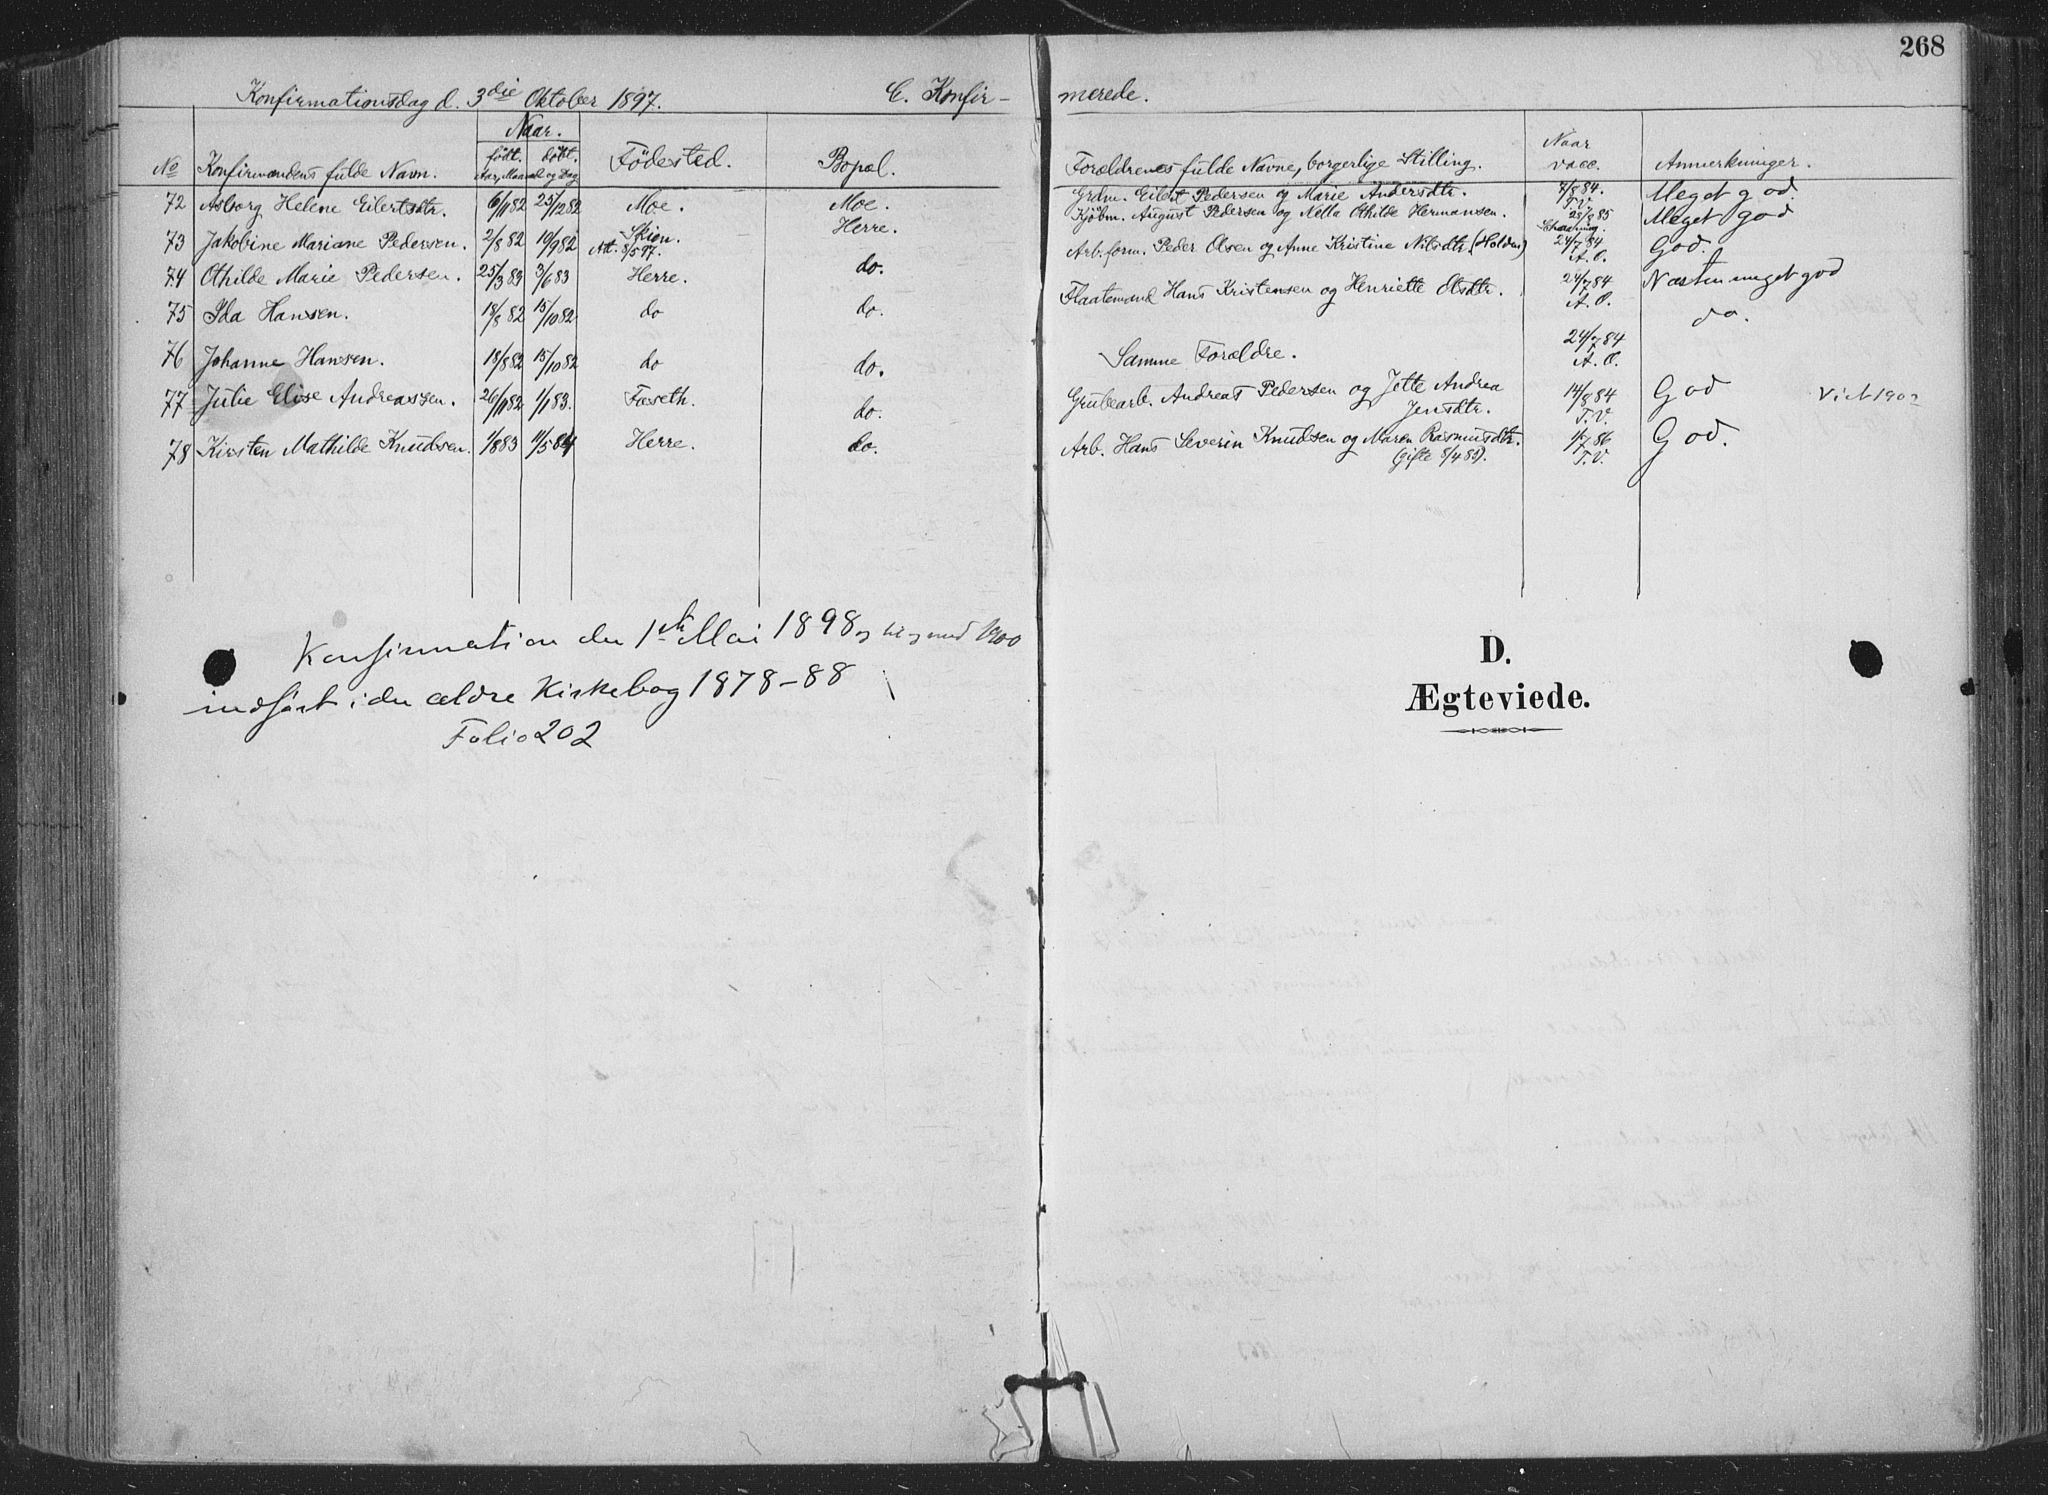 268
Konfirmationsdag d. 3die Oktober 1897. C. Konfir-
merede.
No
Konfirmandens fulde Navn.
Naar.
født. døbt.
Aar, Maaned og Dag
Fødested.
Bopæl.
Forældrenes fulde Navne, borgerlige Stilling.
Naar vacc.
Anmerkninger.
72 Asborg Helene Eilertsdtr. 6/11 82 25/12 82 Moe. Moe. Grdm. Eilert Pedersen og Marie Andersdtr. 7/8 84. T.V. Meget god.
73 Jakobine Mariane Pedersen. 2/8 82 10/9 82 Skien. Att. 8/5 97. Herre. Kjøbm. August Pedersen og Nella Othilde Hermansen. 28/8 85 Meget god
74 Othilde Marie Pedersen. 25/3 83 3/6 83 Herre. do. Arb.form. Peder Olsen og Anne Kristine Nilsdtr. (Holden) 24/7 84 A.O. God.
75 Ida Hansen. 18/8 82 15/10 82 do do. Flaatemand Hans Kristensen og Henriette Olsdtr. 24/7 84 A.O. Næsten meget god
76 Johanne Hansen. 18/8 82 15/10 82 do do. Samme Forældre. 24/7 84 A.O. do.
77 Julie Elise Andreassen. 26/11 82 1/1 83. Fosseth. do. Grubearb. Andreas Pedersen og Jette Andrea Jensdtr. 14/8 84 T.V. God
78 Kirsten Mathilde Knudsen. 1/8 83 11/5 84 Herre. do. Arb. Hans Severin Knudsen og Maren Rasmusdtr. (gifte 8/4 83). 1/7 86 T.V. God.
Konfirmation den 1ste Mai 1898 og til og med 1900
indført i den ældre Kirkebog 1878-88
Folio 202
D.
Ægteviede.